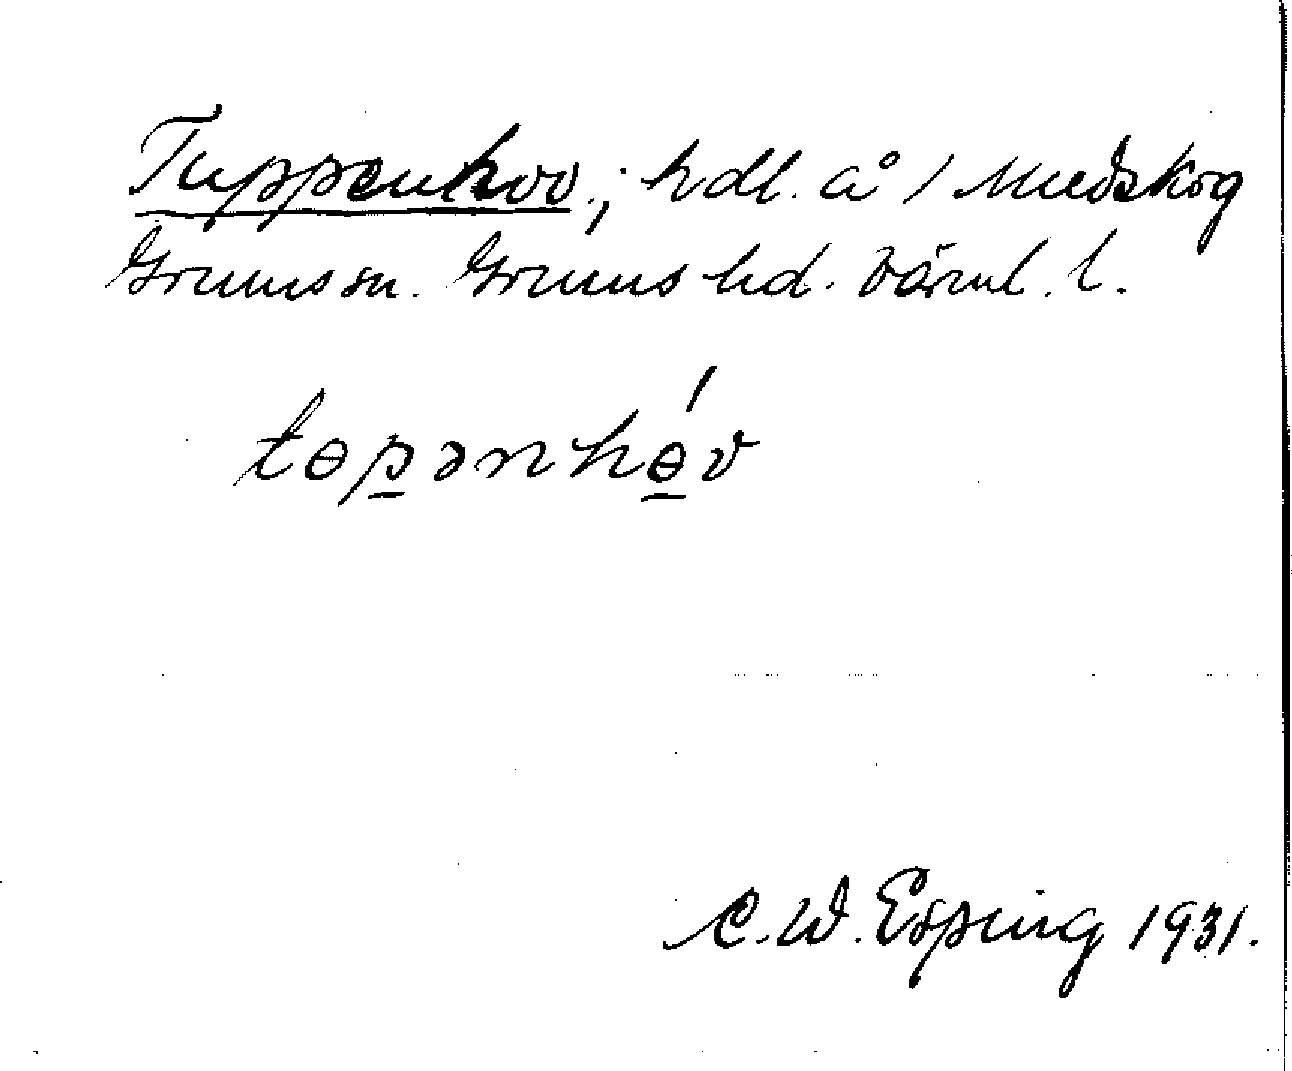 Tuppenhov; hdl. å 1 Medskog
Grums sn. Grums hd. Värml. l.
tɵp̲ənhɵ̲́v
C. W. Esping 1931.